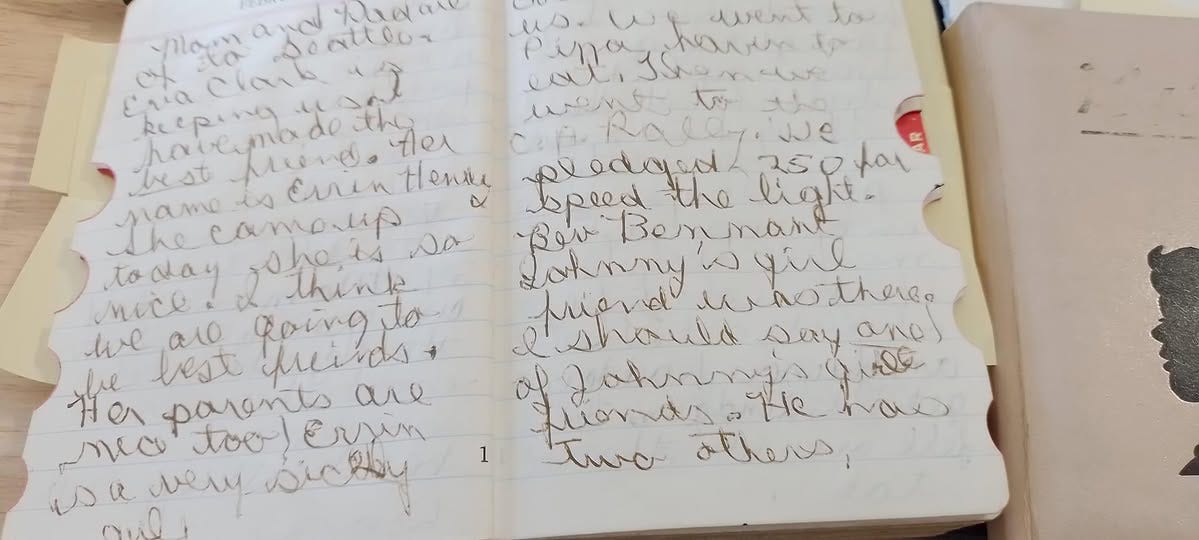 Mom and Dad are
of to Seattle.
Clark is
keeping us. I
have made the
best friend. Her
name is Errin Henry
She came up
today, she is so
nice. I think
we are going to
be best freinds.
Her parents are
nice too! Errin
is a very sickly
girl.
1
us. We went to
Pizza haven to
eat. Then we
went to the
C.A. Rally. We
pledged 250 for
speed the light.
Bev Bennant
Johnny's girl
friend was there.
I should say one
of Johnny's girl
friends. He has
two others,
AR